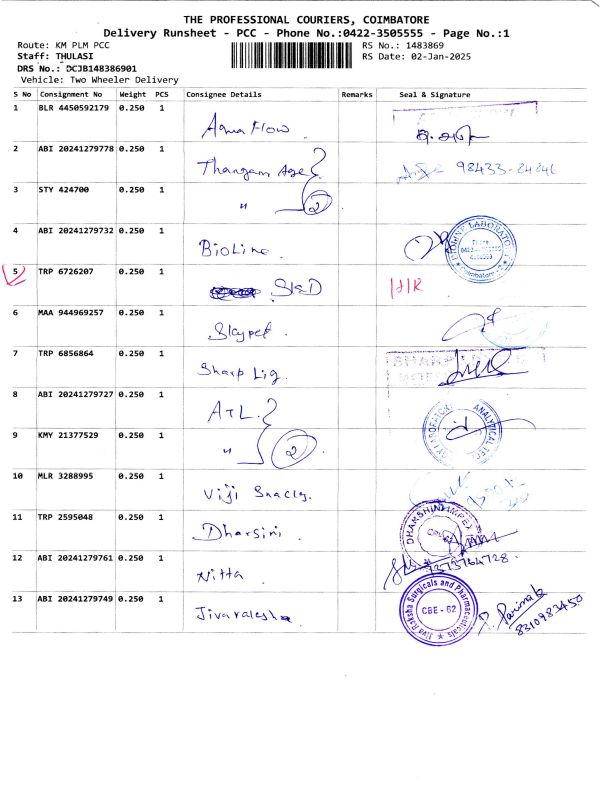 THE PROFESSIONAL COURIERS, COIMBATORE
Delivery Runsheet - PCC - Phone No.:0422-3505555 - Page No.:1
Route: KM PLM PCC
RS No.: 1483869
Staff: THULASI
RS Date: 02-Jan-2025
DRS No.: DCJB148386901
Vehicle: Two Wheeler Delivery
S No Consignment No Weight PCS Consignee Details Remarks Seal & Signature
1 BLR 4450592179 0.250 1 Aqua Flow.
2 ABI 20241279778 0.250 1 Thangam Age 98433-24246
3 STY 424700 0.250 1 " 2
4 ABI 20241279732 0.250 1 BioLine.
5 TRP 6726207 0.250 1 S&D
6 MAA 944969257 0.250 1 Skypet.
7 TRP 6856864 0.250 1 Sharp Lig.
8 ABI 20241279727 0.250 1 ATL.
9 KMY 21377529 0.250 1 " 2
10 MLR 3288995 0.250 1 Viji Snacks.
11 TRP 2595048 0.250 1 Dharsini. DHARSHINI IMPEX
12 ABI 20241279761 0.250 1 Nitta
9373764728.
13 ABI 20241279749 0.250 1 Jivaraksha Jiva Raksha Surgicals and Pharmaceuticals
CBE - 62
8310983450